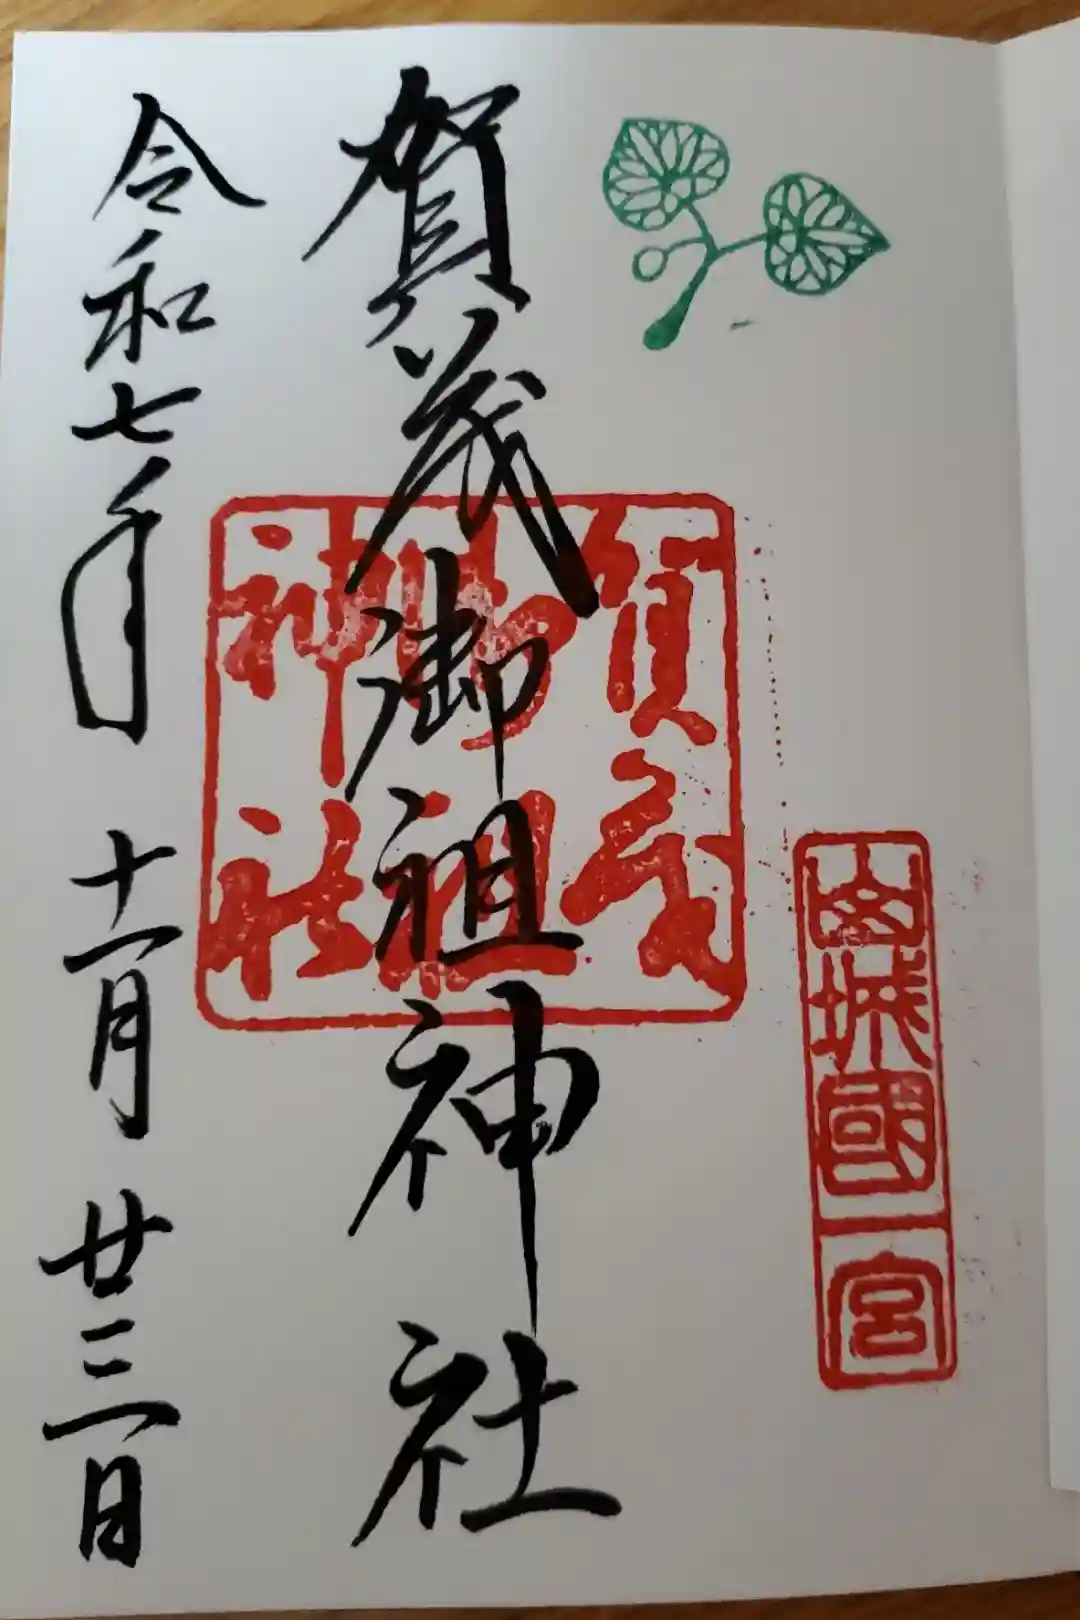 山城國一宮
賀茂御祖神社
賀茂
御祖
神社
令和七年十一月廿三日